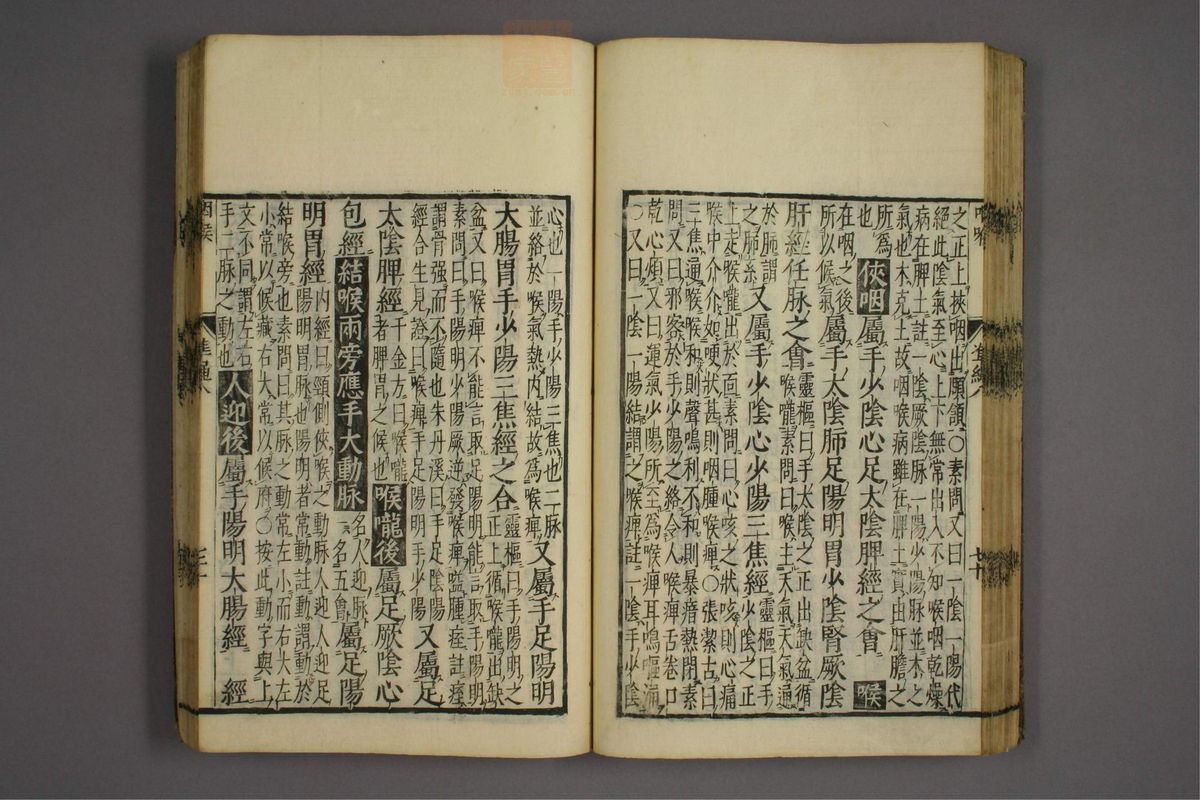 之正上挾咽出頤頷○素問又曰一陰一陽代
絕此陰氣至心上下無常出入不知喉咽乾燥
病在脾土註一陰厥陰脉一陽少陽脉並木之
氣也木克土故咽喉病雖在脾土實由肝膽之
所爲
也 俠咽屬手少陰心足太陰脾經之會 喉
在咽之後
所以候氣屬手太陰肺足陽明胃少陰腎厥陰
肝經任脉之會靈樞曰手太陰之正出缺盆循
喉嚨素問曰喉主天氣天氣通
於肺謂
之肺系又屬手少陰心少陽三焦經靈樞曰手
少陰之正
上走喉嚨出於面素問曰心咳之狀咳則心痛
喉中介介如哽狀甚則咽腫喉痺○張潔古曰
三焦通喉喉和則聲鳴利不和則暴瘖熱閉素
問又曰邪客於手少陽之絡令人喉痺舌卷口
乾心煩又曰運氣少陽所至爲喉痺耳鳴嘔涌
○又曰一陰一陽結謂之喉痺註一陰手少陰
心也一陽手少陽三焦也二脉
並絡於喉氣熱內結故爲喉痺又屬手足陽明
大腸胃手少陽三焦經之合靈樞曰手陽明之
正上循喉嚨出缺
盆又曰喉痺不能言取足陽明能言取手陽明
素問曰手陽明少陽厥逆發喉痺嗌腫痓註痓
謂骨强而不隨也朱丹溪曰手足陰陽
經合生見證曰喉痺手足陽明手少陽又屬足
太陰脾經千金方曰喉嚨
者脾胃之候也喉嚨後屬足厥陰心
包經結喉兩旁應手大動脉名人迎脉
一名五會屬足陽
明胃經內經曰頸側俠喉之動脉人迎人迎足
陽明胃脉也陽明者常動註動謂動於
結喉旁也素問曰其脉之動常左小而右大左
小常以候藏右大常以候府○按此動字與上
文不同謂左右
手二脉之動也人迎後屬手陽明大腸經 經